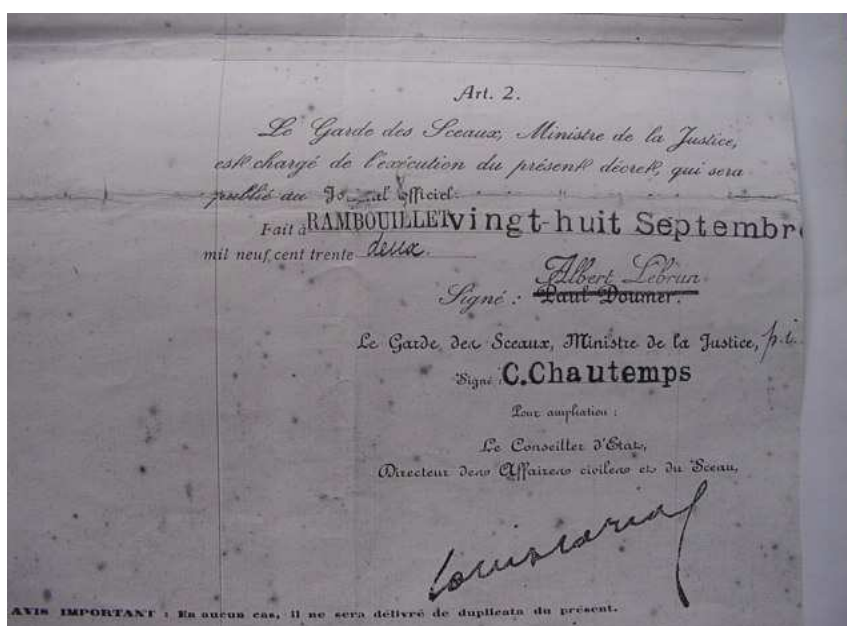 Art. 2.
Le Garde des Sceaux, Ministre de la Justice,
est chargé de l'exécution du présent décret, qui sera
publié au Jo al Officiel.
Fait à RAMBOUILLET vingt-huit Septembre
mil neuf cent trente deux.
Albert Lebrun
Signé : Paul Doumer.
Le Garde des Sceaux, Ministre de la Justice, p.i.
Signé : C.Chautemps
Pour ampliation :
Le Conseiller d'Etat,
Directeur des Affaires civiles et du Sceau,
AVIS IMPORTANT : En aucun cas, il ne sera délivré de duplicata du présent.